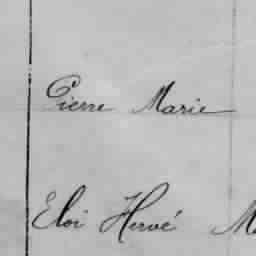 Pierre Marie
Eloi Hervé